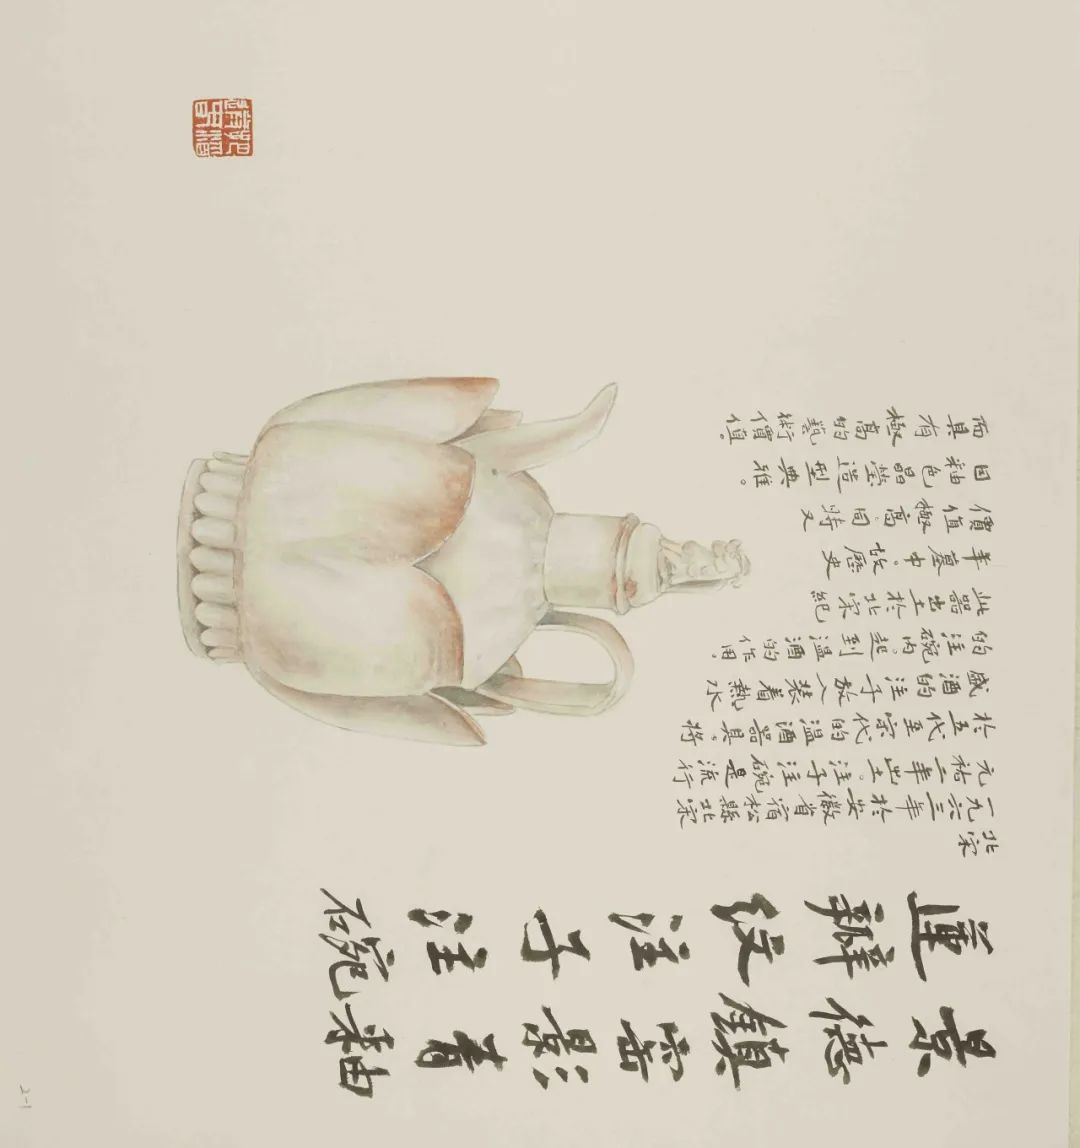 景德鎮窑影青釉
蓮瓣纹注子注碗
北宋
一九六三年於安徽省宿松縣北宋
元祐二年出土。注子注碗是流行
於五代至宋代的温酒器具。将
盛酒的注子放入装着熱水
的注碗内。起到温酒的作用。
此器出土於北宋紀
年墓中。故歷史
價值極高。同時又
因釉色晶莹造型典雅。
而具有極高的藝術價值。
2-1